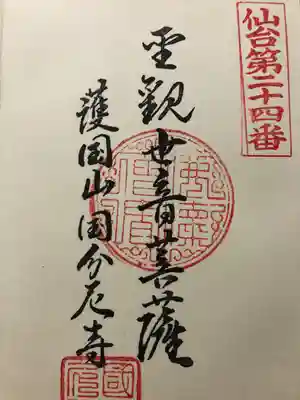 仙台第二十四番
聖観世音菩薩
護国山国分尼寺